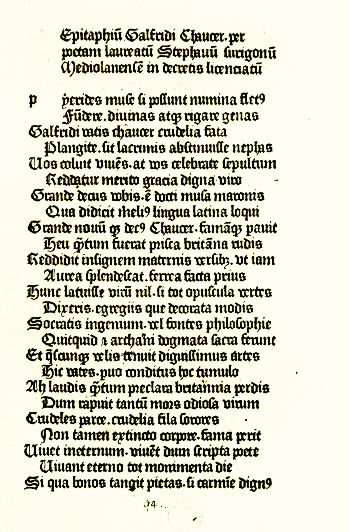 Epitaphiū Galfridi Chaucer. per
poetam laureatū Stephanū surigonū
Mediolanensē in decretis licenciatū
p yerides muse si possunt numina flet⁹
Fūdere. diuinas atqȝ rigare genas
Galfridi vatis chaucer crudelia fata
Plangite. sit lacrimis abstinuisse nephas
Uos coluit viuēs. at vos celebrate sepultum
Reddatur merito gracia digna viro
Grande decus vobis. ē docti musa maronis
Qua didicit meli⁹ lingua latina loqui
Grande nouū qȝ dec⁹ Chaucer. famāqȝ pauit
Heu q̄tum fuerat prisca britāna rudis
Reddidit insignem maternis versibȝ. vt iam
Aurea splendescat. ferrea facta prius
Hunc latuisse virū nil. si tot opuscula vertes
Dixeris. egregiis que decorata modis
Socratis ingenium. vel fontes philosophie
Quitquid & archani dogmata sacra ferunt
Et q̄scunqȝ velis tenuit dignissimus artes
Hic vates. puo conditus hoc tumulo
Ah laudis q̄tum preclara britannia perdis
Dum rapuit tantū mors odiosa virum
Crudeles parce. crudelia fila sorores
Non tamen extincto corpore. fama perit
Uiuet ineternum. viuēt dum scripta poete
Uiuant eterno tot monimenta die
Si qua bonos tangit pietas. si carmīe dign⁹
94